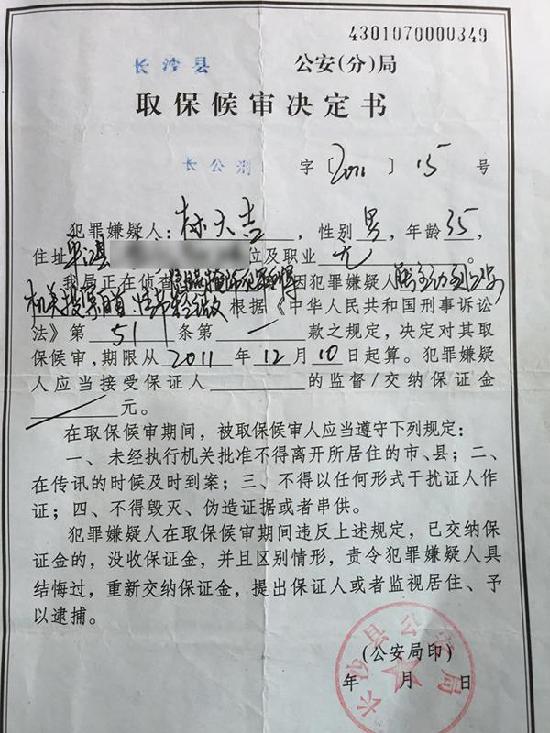 4301070000349
长沙县 公安(分)局
取保候审决定书
长公刑 字〔2011〕15号
犯罪嫌疑人：林天吉，性别男，年龄35，
住址 位及职业无。
我局正在侦查 因犯罪嫌疑人
机关投案自首 情节轻微 根据《中华人民共和国刑事诉讼
法》第51条第一款之规定，决定对其取
保候审，期限从2011年12月10日起算。犯罪嫌疑
人应当接受保证人 的监督/交纳保证金
元。
在取保候审期间，被取保候审人应当遵守下列规定：
一、未经执行机关批准不得离开所居住的市、县；二、
在传讯的时候及时到案；三、不得以任何形式干扰证人作
证；四、不得毁灭、伪造证据或者串供。
犯罪嫌疑人在取保候审期间违反上述规定，已交纳保
证金的，没收保证金，并且区别情形，责令犯罪嫌疑人具
结悔过，重新交纳保证金，提出保证人或者监视居住、予
以逮捕。
(公安局印)
年 月 日
长沙县公安局